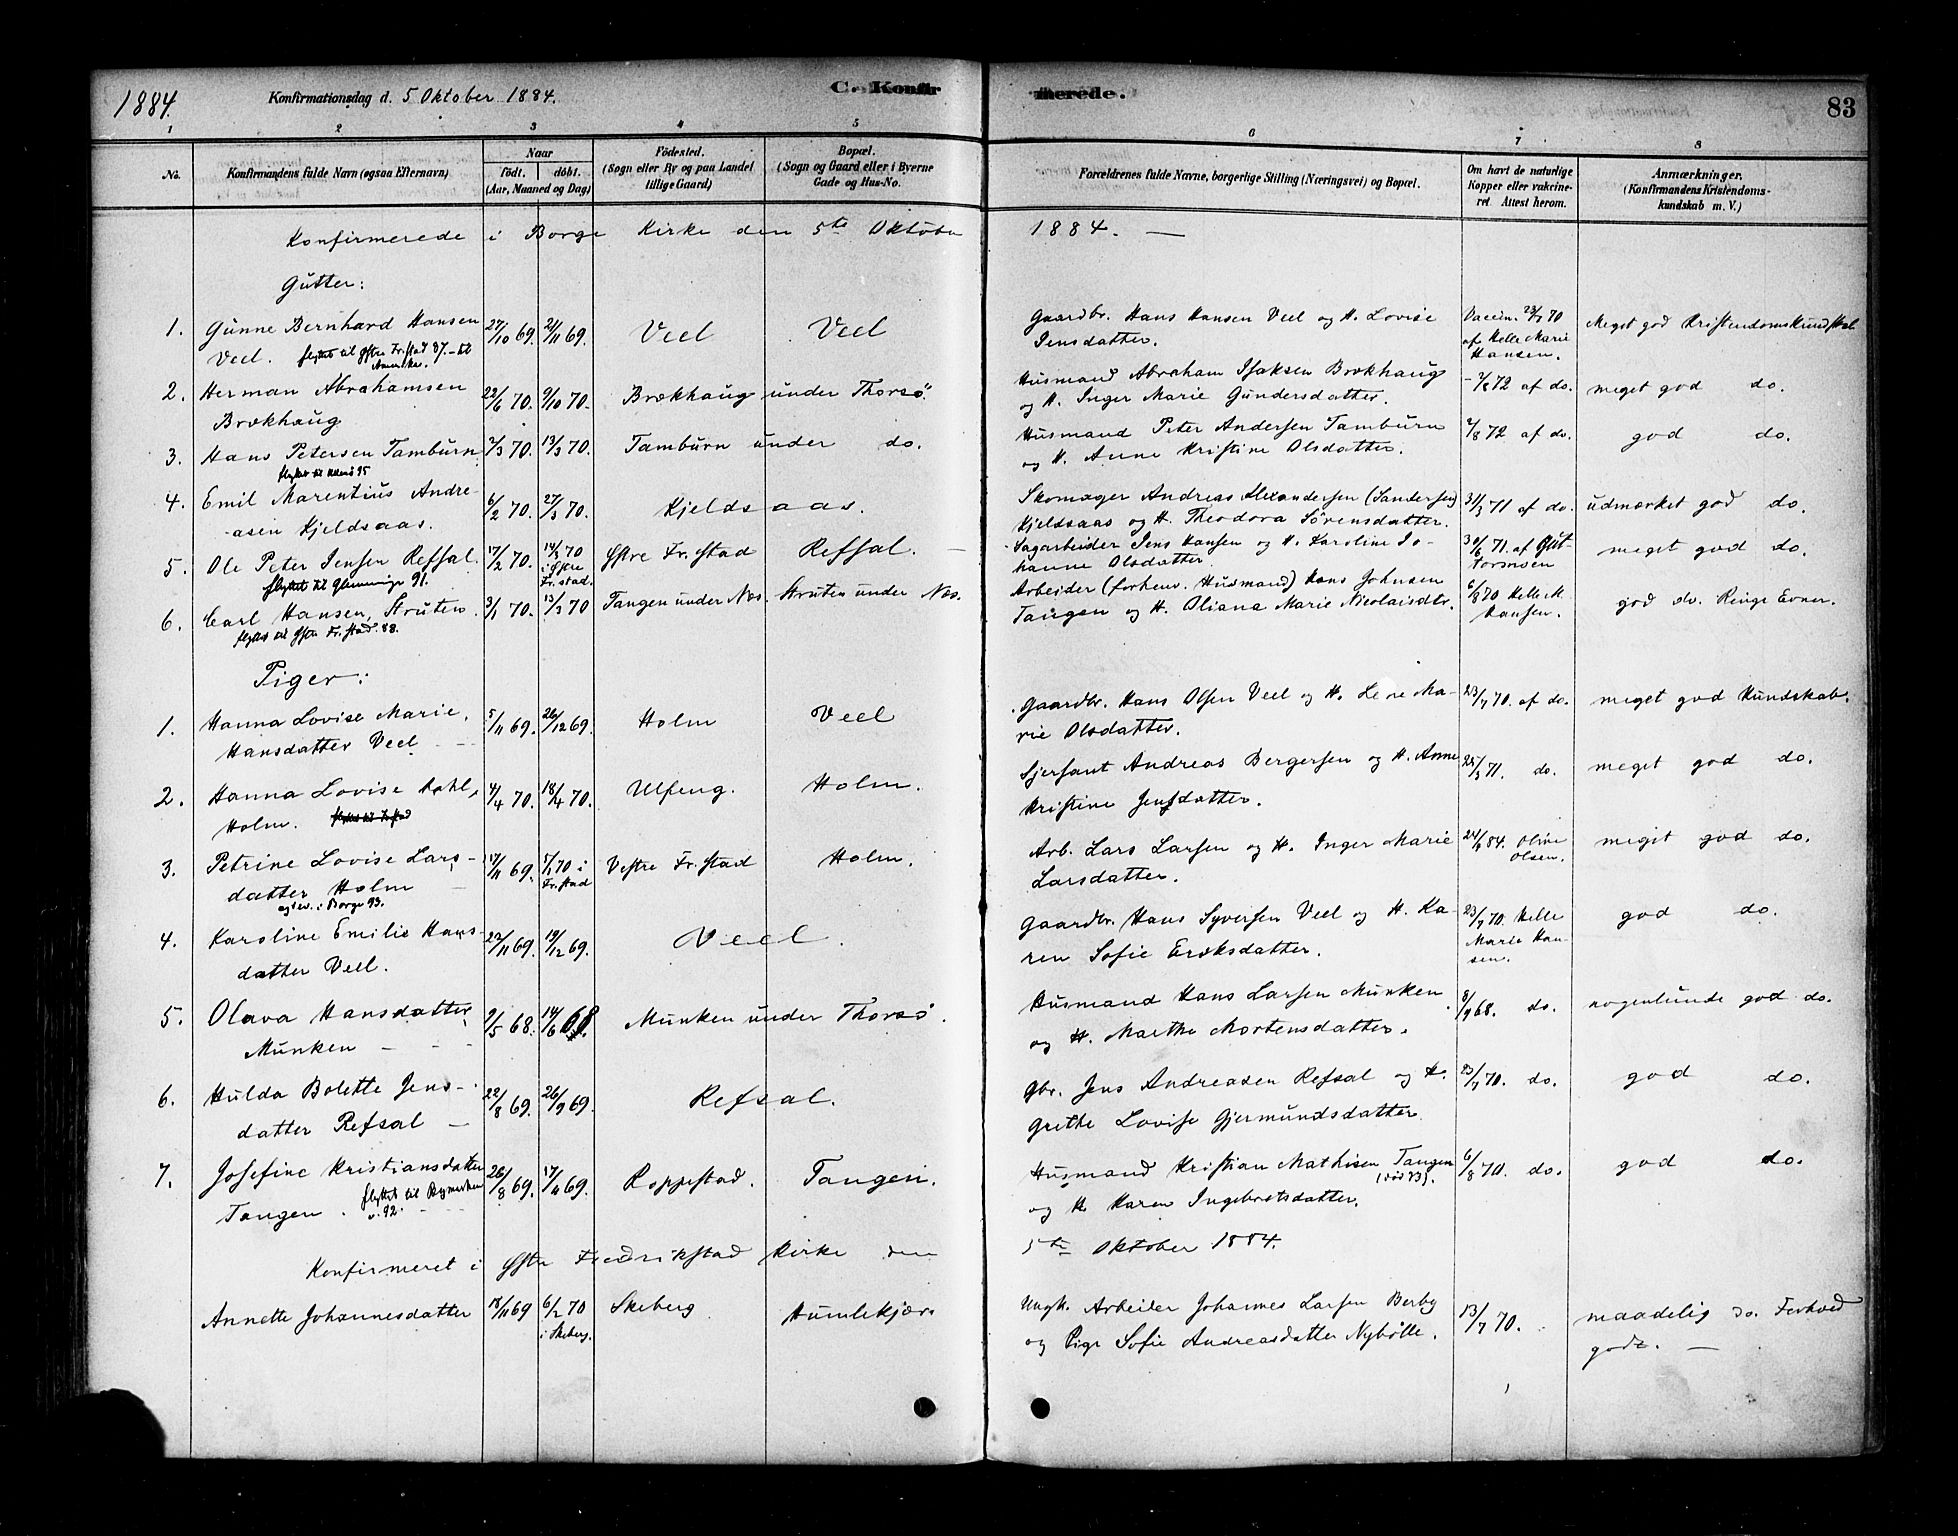 1884. Konfirmationsdag d. 5 Oktober 1884. C. Konfirmerede. 83
1 2 3 4 5 6 7 8
No. Konfirmandens fulde Navn (ogsaa Efternavn) Naar født. døbt. (Aar, Maaned og Dag) Fødested. (Sogn eller By og paa Landet tillige Gaard) Bopæl. (Sogn og Gaard eller i Byerne Gade og Hus-No.) Forældrenes fulde Navne, borgerlige Stilling (Næringsvei) og Bopæl. Om havt de naturlige Kopper eller vakcineret. Attest herom. Anmærkninger. (Konfirmandens Kristendomskundskab m. V.)
Konfirmerede i Borge Kirke den 5te Oktober 1884. —
Gutter:
1. Gunne Bernhard Hansen 27/10 69. 21/11 69. Veel Veel Gaardbr. Hans Hansen Veel og H. Lovise Vaccin. 23/7 70 Meget god Kristendomskundskab
Veel. flyttet til Østre Fr.stad 87. – til Amerika. Jensdatter. af Helle Marie Hansen.
2. Herman Abrahamsen 22/6 70. 9/10 70. Brækhaug under Thorsø. Husmand Abraham Isaksen Brækhaug – 7/8 72 af do. meget god do.
Brækhaug og H. Inger Marie Gundersdatter.
3. Hans Petersen Tamburn 2/3 70. 13/3 70. Tamburn under do. Husmand Peter Andersen Tamburn 7/8 72 af do. god do.
flyttet til 95 og H. Anne Kristine Olsdatter.
4. Emil Marentius Andre- 6/2 70. 27/3 70. Kjeldsaas. Skomager Andreas Alexandersen (Sandersen) 31/3 71 af do. udmærket god do.
asen Kjeldsaas. Kjeldsaas og H. Theodora Sörensdatter.
5. Ole Peter Jensen Refsal. 17/2 70. 14/3 70 i Østre Fr.stad. Østre Fr.stad Refsal. – Sagarbeider Jens Hansen og H. Karoline Jo- 30/6 71. af Gut- meget god do.
flyttet til Glemminge 91. hanne Olsdatter. tormsen
6. Carl Hansen, Struten. 3/1 70. 13/3 70 Tangen under Næs. Struten under Næs. Arbeider (forhenv. Husmand) Hans Johnsen 6/8 70 Helle M. god do. Ringe Evner.
flyttet til Østre Fr.stad. 88. Tangen og H. Oliana Marie Nicolaisdtr. Hansen.
Piger:
1. Hanna Lovise Marie, 5/11 69. 26/12 69. Holm Veel Gaardbr. Hans Olsen Veel og H. Lene Ma- 23/7 70. af do. meget god Kundskab.
Hansdatter Veel rie Olsdatter.
2. Hanna Lovise Dahl, 4/4 70. 18/4 70. Ulfeng. Holm. Sjersant Andreas Bergersen og H. Anne 25/3 71. do. meget god do.
Holm. Kristine Jensdatter.
3. Petrine Lovise Lars- 17/11 69. 5/1 70 i Fr.stad Vestre Fr.stad Holm. Arb. Lars Larsen og H. Inger Marie 24/4 84. Oline Olsen. meget god do.
datter Holm Larsdatter.
i Borge 93.
4. Karoline Emilie Hans- 22/11 69. 19/12 69. Veel. Gaardbr. Hans Syversen Veel og H. Ka- 23/7 70. Helle god do.
datter Veel. ren Sofie Eriksdatter. Marie Hansen.
5. Olava Hansdatter 9/5 68. 14/6 68. Munken under Thorsø. Husmand Hans Larsen Munken 8/9 68. do. nogenlunde god do.
Munken – – – og H. Marthe Mortensdatter.
6. Hulda Bolette Jens- 22/8 69. 26/9 69. Refsal. Gbr. Jens Andreasen Refsal og H. 23/7 70. do. god do.
datter Refsal – Grethe Lovise Gjermundsdatter
7. Josefine Kristiansdatter 26/8 69. 17/11 69. Roppestad. Tangen. Husmand Kristian Mathisen Tangen 6/8 70. do. god do.
Tangen. flyttet til v. 92. og H. Karen Ingebretsdatter.
Konfirmeret i Østre Fredrikstad Kirke den 5te Oktober 1884.
Annette Johannesdatter 18/11 69 6/2 70 i Skeberg. Skeberg Humlekjær Ungk. Arbeider Johannes Larsen Berby 13/7 70. maadelig do. Forhold
og Pige Sofie Andreasdatter Nybölle. godt. —